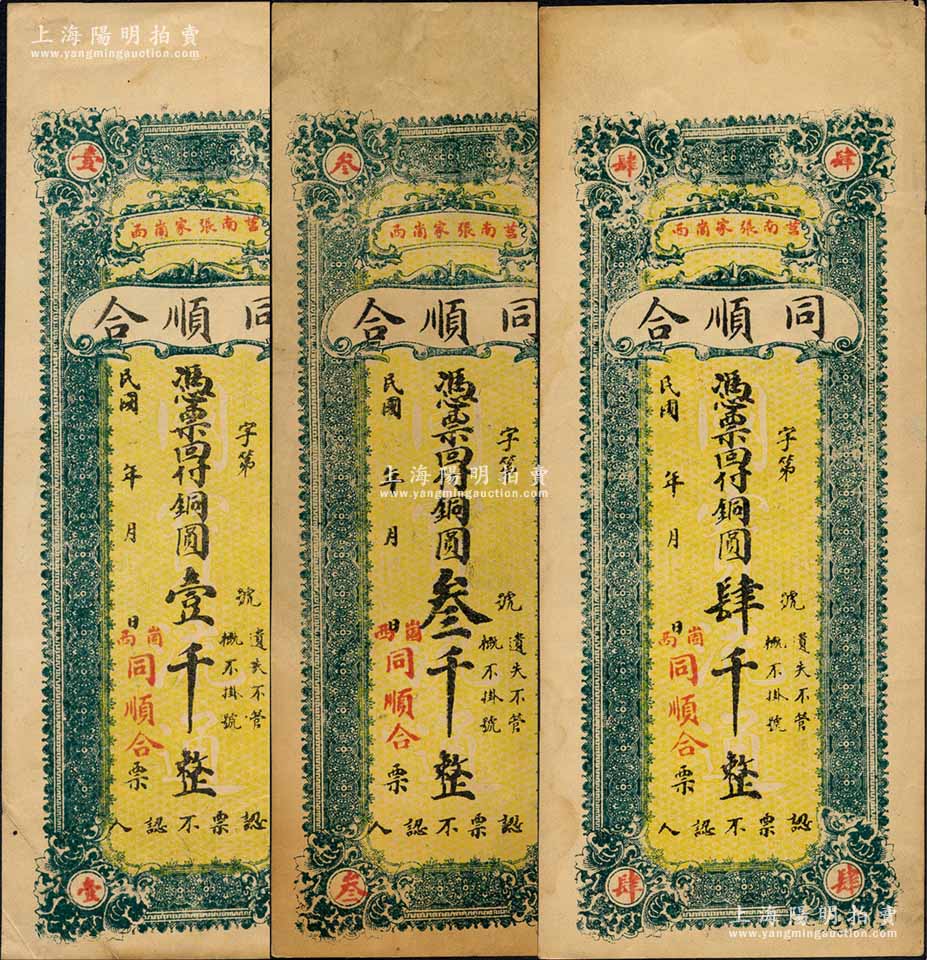 上海陽明拍賣
www.yangmingauction.com
壹
莒南張家崗西
同順合
字第
號
憑票囬付銅圓壹千整
民國
年
月
日
遺失不管
概不掛號
崗西
同順合
票
認票不認人
壹
叁
莒南張家崗西
同順合
字第
號
憑票囬付銅圓叁千整
民國
年
月
日
遺失不管
概不掛號
崗西
同順合
票
認票不認人
叁
上海陽明拍賣
www.yangmingauction.com
肆
肆
莒南張家崗西
同順合
字第
號
憑票囬付銅圓肆千整
民國
年
月
日
遺失不管
概不掛號
崗西
同順合
票
認票不認人
肆
肆
上海陽明拍賣
www.yangmingauction.com